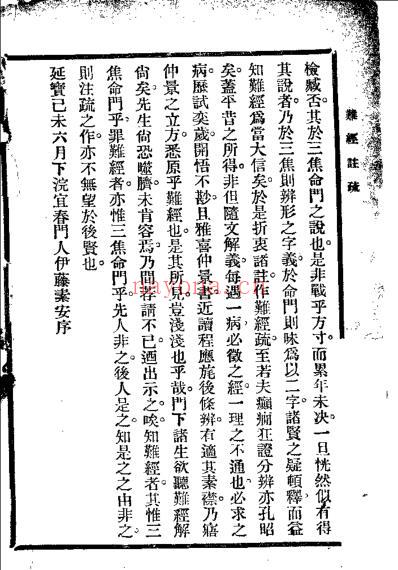 難經註疏
檢臧否。其於三焦命門之說也。是非戰乎方寸。而累年未决。一旦恍然似有得
其說者。乃於三焦則辨形之字義。於命門則昧爲以二字。諸賢之疑頓釋。而益
知難經爲當大信矣。於是折衷諸註。作難經疏。至若夫癲癎狂證分辨。亦孔昭
矣。蓋平昔之所得。非但隨文解義。每遇一病。必徵之經。一理之不通也。必求之
病。歷試奕歲。開悟不尠。且雅喜仲景書。近讀程應旄後條辨。有適其素襟。乃寤
仲景之立方。悉原乎難經也。是其所見。豈淺淺也乎哉。門下諸生欲聽難經解
尚矣。先生尚恐噬臍。未肯容焉。乃閒容請不已。迺出示之。唉知難經者。其惟三
焦命門乎。罪難經者。亦惟三焦命門乎。先人非之。後人是之。知是之之由非之。
則注疏之作。亦不無望於後賢也。
延寶己未六月下浣宜春門人伊藤素安序